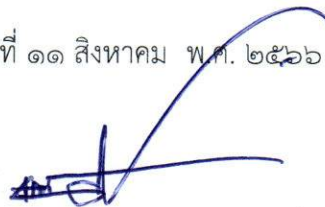 ที่ ๑๑ สิงหาคม พ.ศ. ๒๕๖๖